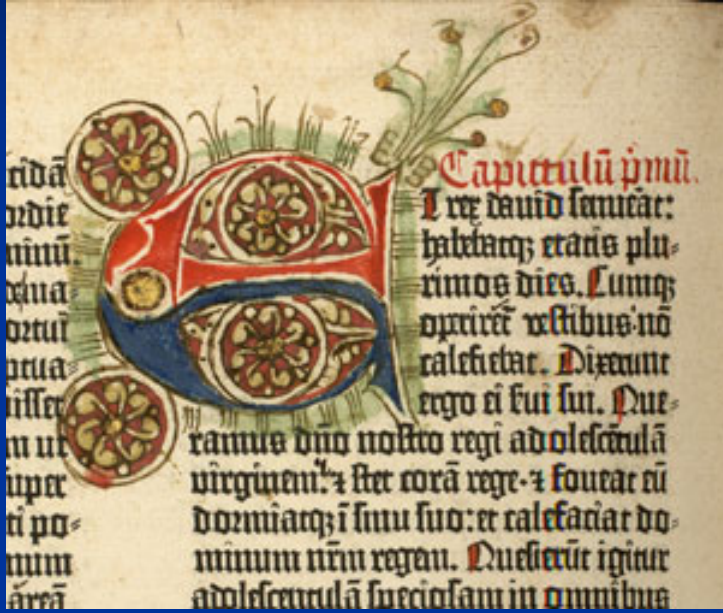 ordie
minũ.
m ut
uper
ti po⸗
mum
areã
Capittulũ p̃mũ.
ET rex dauid senuerat:
habebatq; etatis plu⸗
rimos dies. Cumq;
operiret̃ vestibus· nõ
calefiebat. Dixerunt
ergo ei serui sui. Que⸗
ramus dño nostro regi adolescẽtulã
virginem: ⁊ stet corã rege· ⁊ foueat eũ
dormiatq; ĩ sinu suo: et calefaciat do⸗
minum nr̃m regem. Quesierũt igitur
adolescentulã speciosam in omnibus